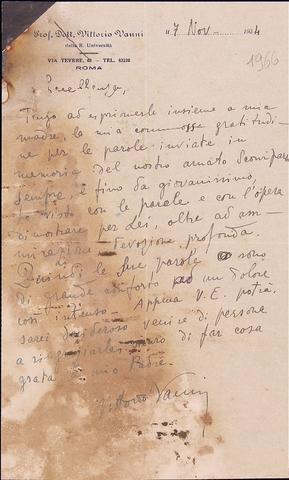 Prof. Dott. Vittorio Vanni
della R. Università
VIA TEVERE, 48 - TEL. 83228
ROMA
7 Nov 4
1966
Eccellenza,
Tengo ad esprimerle insieme a mia
madre, la mia commossa gratitudi-
ne per le parole inviate in
memoria del nostro amato scomparso
Sempre, e fino da giovanissimo,
visto con le parole e con l'opera
dimostrare per Lei, oltre ad am-
mirazione devozione profonda.
Quindi le Sue parole sono
di grande conforto ad un dolore
così intenso. Appena V. E. potrà
sarei desideroso venire di persona
a di far cosa
grata mio Padre.
Vittorio Vanni